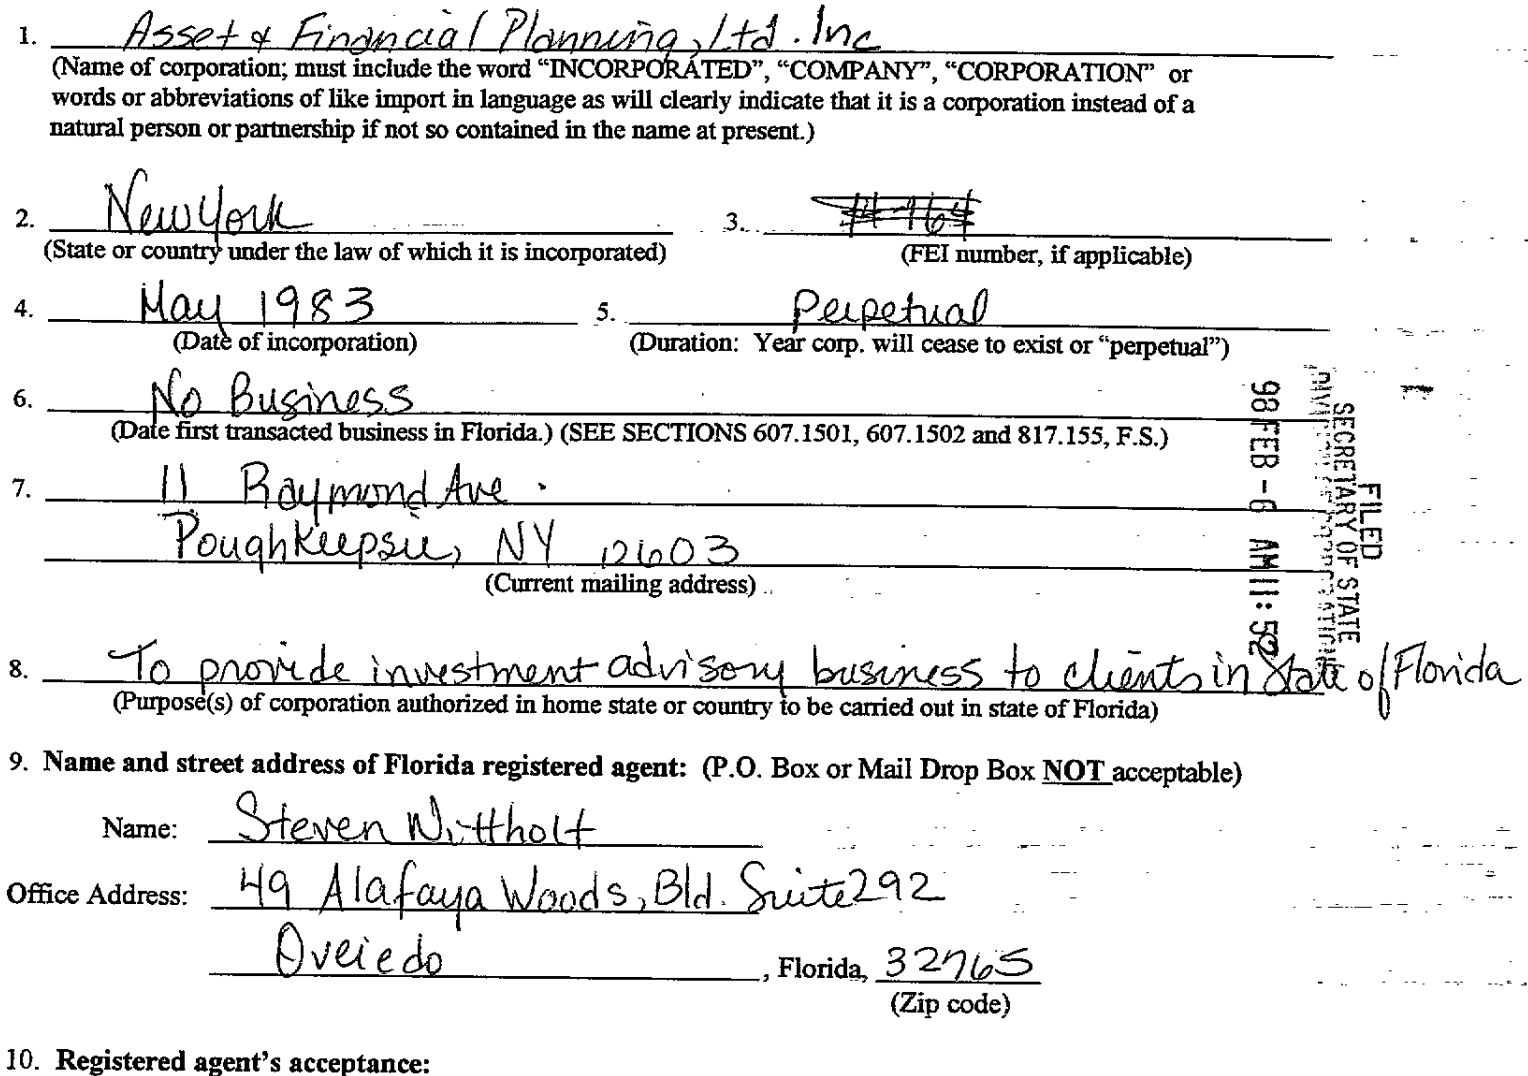 1. Asset & Financial Planning, Ltd. Inc
(Name of corporation; must include the word “INCORPORATED”, “COMPANY”, “CORPORATION” or
words or abbreviations of like import in language as will clearly indicate that it is a corporation instead of a
natural person or partnership if not so contained in the name at present.)
2. New York 3.
(State or country under the law of which it is incorporated) (FEI number, if applicable)
4. May 1983 5. Perpetual
(Date of incorporation) (Duration: Year corp. will cease to exist or “perpetual”)
6. No Business
(Date first transacted business in Florida.) (SEE SECTIONS 607.1501, 607.1502 and 817.155, F.S.)
7. 11 Raymond Ave.
Poughkeepsie, NY 12603
(Current mailing address)
FILED
SECRETARY OF STATE
98 FEB -6 AM 11: 52
8. To provide investment advisory business to clients in State of Florida
(Purpose(s) of corporation authorized in home state or country to be carried out in state of Florida)
9. Name and street address of Florida registered agent: (P.O. Box or Mail Drop Box NOT acceptable)
Name: Steven Wittholt
Office Address: 49 Alafaya Woods, Bld. Suite 292
Oveiedo, Florida, 32765
(Zip code)
10. Registered agent's acceptance: